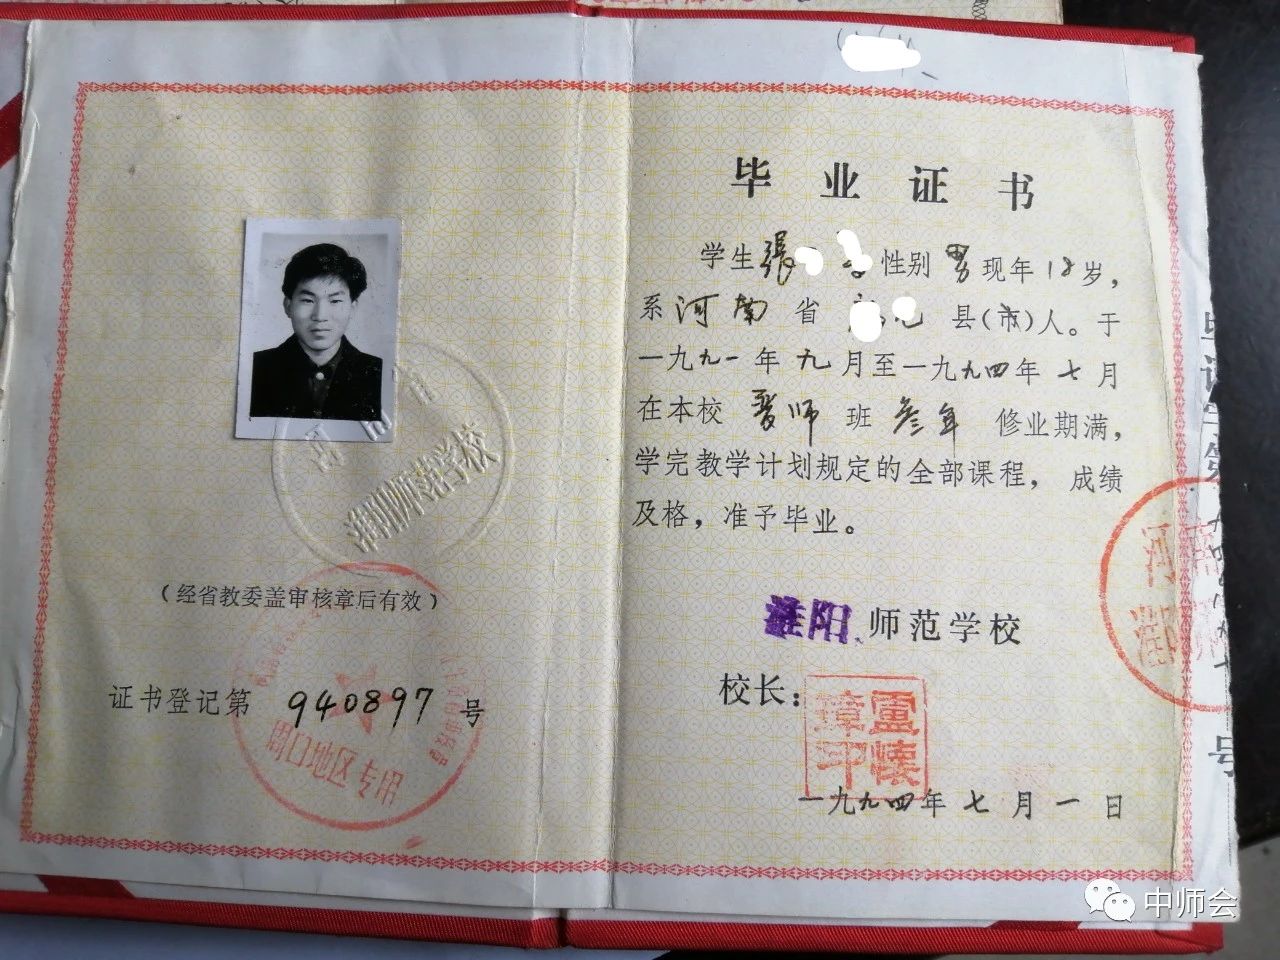 毕业证书
学生張 性别 男 现年 18 岁，
系 河南 省 县(市)人。于
一九九一年 九 月至一九九四年 七 月
在本校 普师 班 叁年 修业期满，
学完教学计划规定的全部课程，成绩
及格，准予毕业。
淮阳 师范学校
校长：
盧懐璋印
一九九四年 七 月 一 日
淮阳师范学校
(经省教委盖审核章后有效)
证书登记第 940897 号
周口地区专用
河南
号
中师会